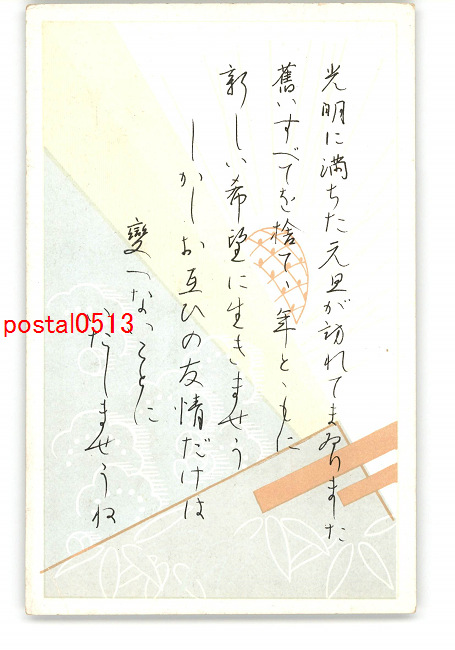 光明に満ちた元旦が訪れてまゐりました
舊いすべてを捨てゝ年とゝもに
新しい希望に生きませう
しかしお互ひの友情だけは
變へないことに
いたしませうね
postal0513